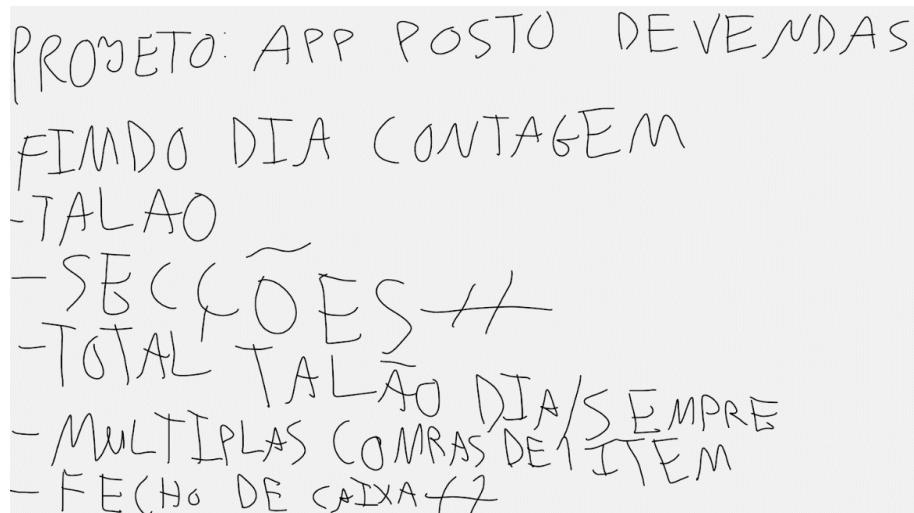 PROJETO: APP POSTO DE VENDAS
FIM DO DIA CONTAGEM
-TALAO
- SECÇÕES
- TOTAL TALÃO DIA/SEMPRE
- MULTIPLAS COMRAS DE 1 ITEM
- FECHO DE CAIXA